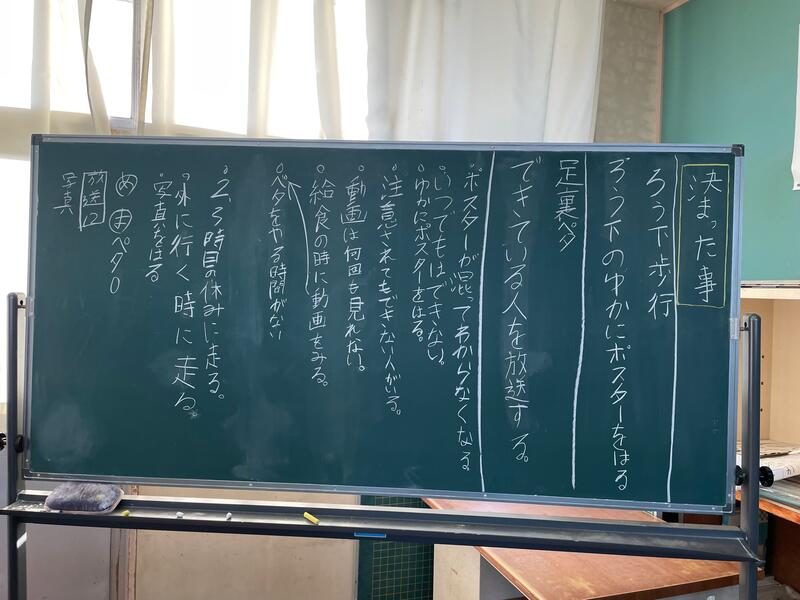 決まった事
ろう下歩行
ろう下のゆかにポスターをはる
足裏ペタ
できている人を放送する。
ポスターが混ってわからなくなる
いつでもはできない。
ゆかにポスターをはる。
注意されてもできない人がいる。
動画は何回も見れない。
給食の時に動画をみる。
ペタをやる時間がない
2,3時目の休みに走る。
外に行く時に走る
写真をはる
め ま ペタ0
放送 12
写真